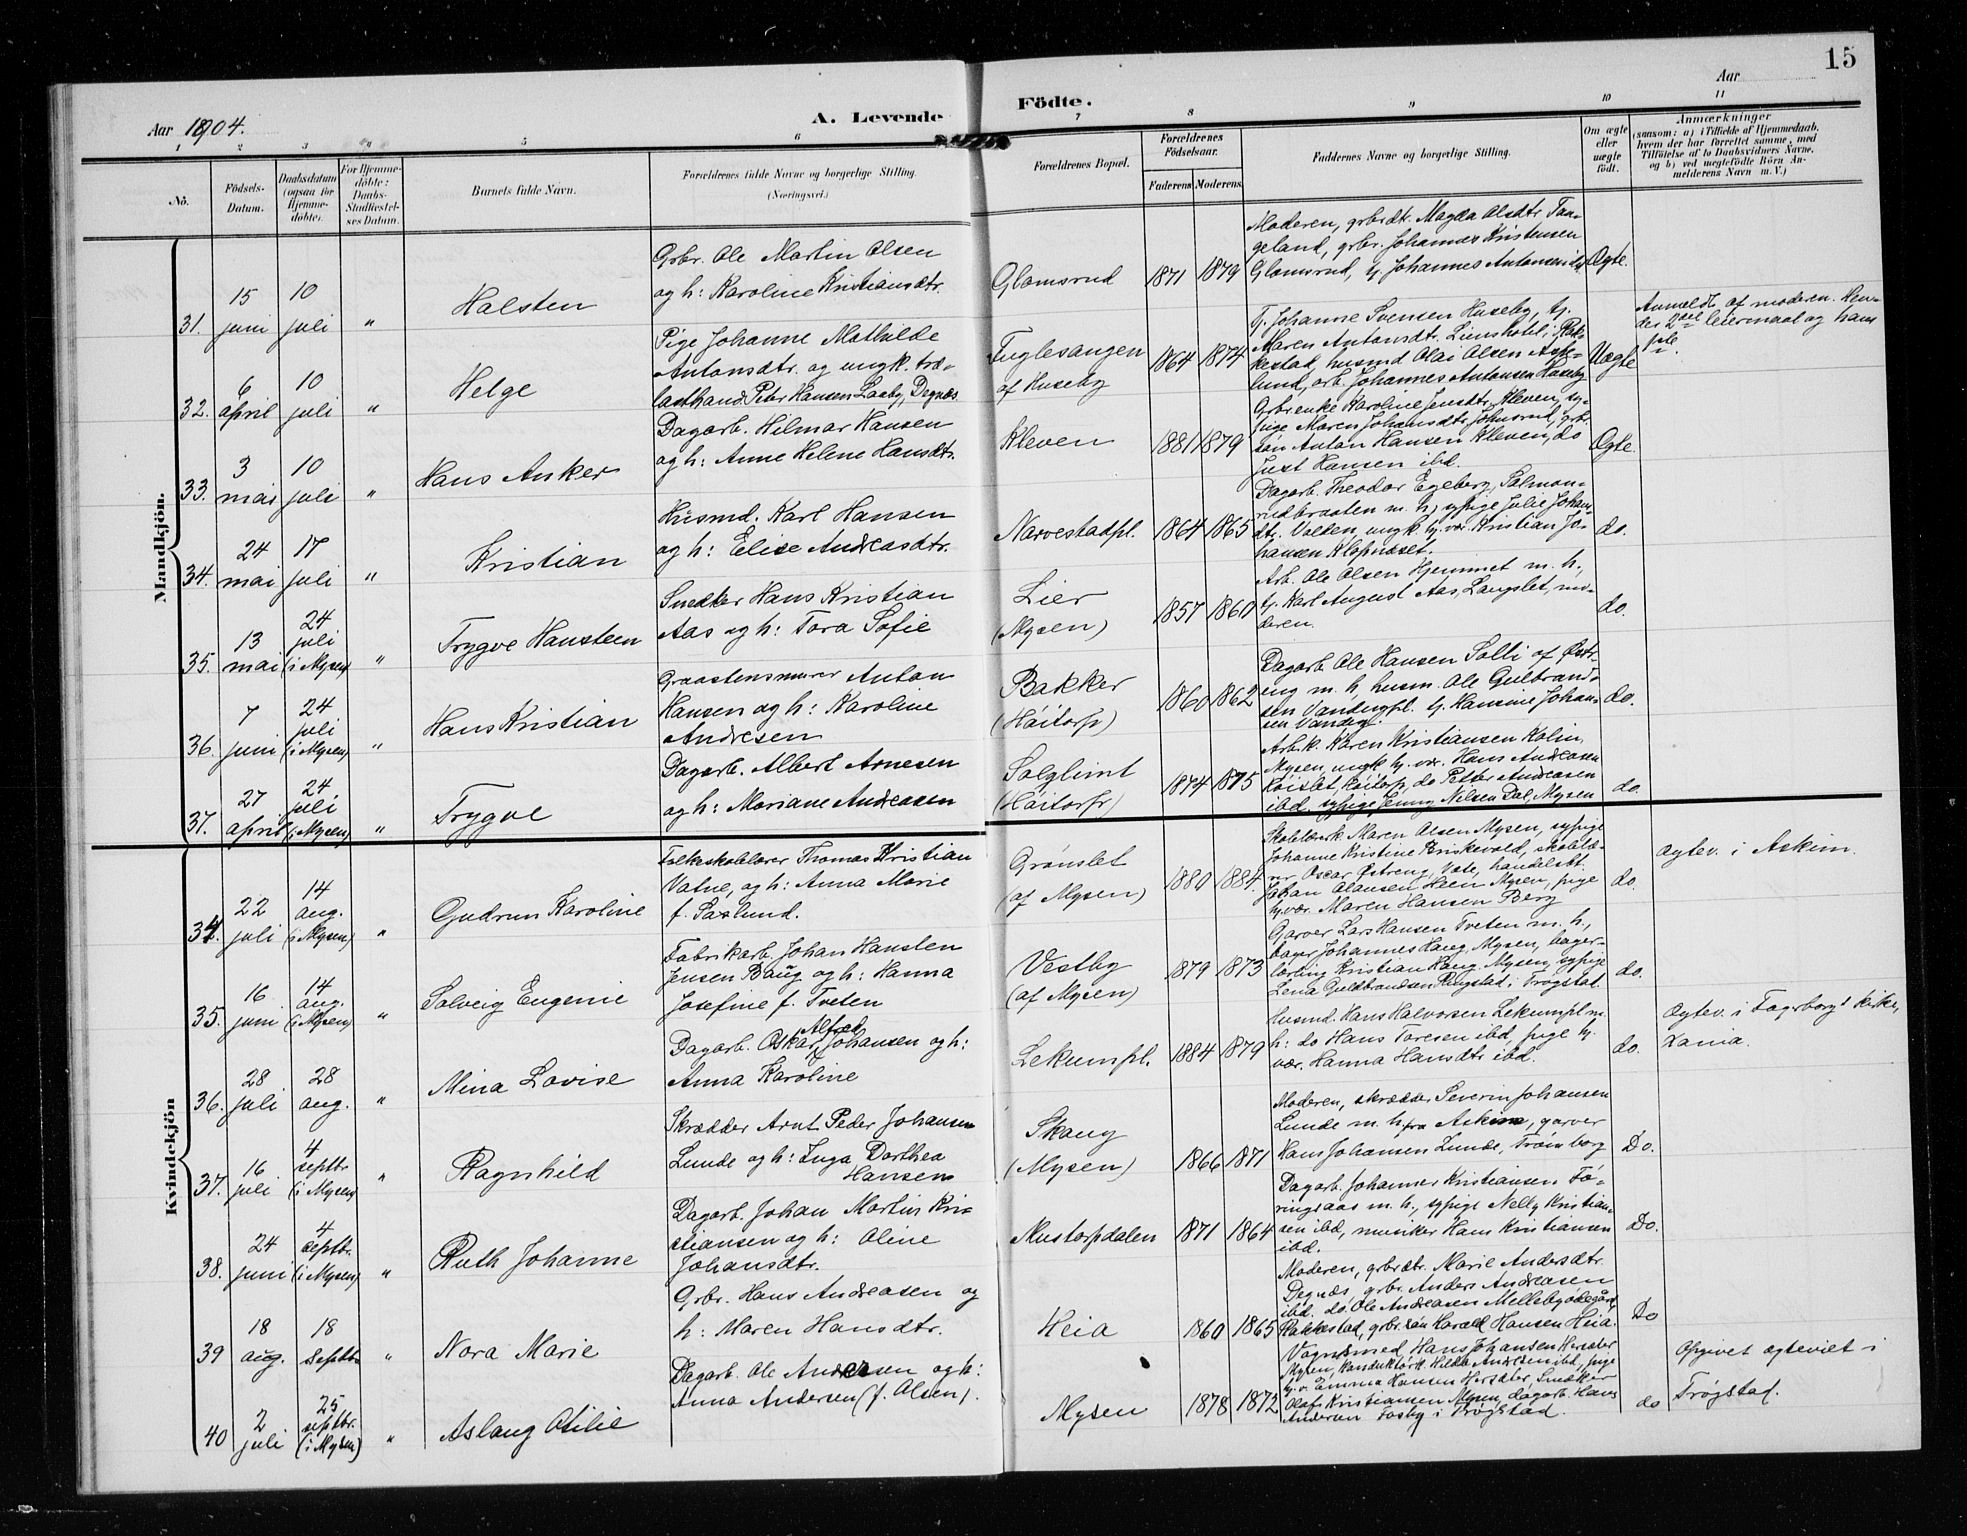 15
Aar 1904.
A. Levende
Födte.
Aar
1 2 3 4 5 6 7 8 9 10 11
No.
Födsels-
Datum.
Daabsdatum
(ogsaa for
Hjemme-
döbte).
For Hjemme-
döbte:
Daabs-
Stadfæstel-
ses Datum.
Barnets fulde Navn.
Forældrenes fulde Navne og borgerlige Stilling.
(Næringsvei.)
Forældrenes Bopæl.
Forældrenes
Födselsaar.
Faderens. Moderens.
Faddernes Navne og borgerlige Stilling.
Om ægte
eller
uægte
födt.
Anmærkninger
(saasom: a) i Tilfælde af Hjemmedaab,
hvem der har forrettet samme, med
Tilföielse af to Daabsvidners Navne,
og b) ved uægtefödte Börn An-
melderens Navn m. V.)
Mandkjön.
31. 15 juni 10 juli " Halsten
Grbr. Ole Martin Olsen
og h: Karoline Kristiansdtr.
Glomsrud 1871 1879
Moderen, grbrdt. Magda Olsdtr. Taa-
geland, grbr. Johannes Kristensen
Glomsrud, tj. Johannes Antonsen ibd.
Ægte.
32. 6 april 10 juli " Helge
Pige Johanne Mathilde
Antonsdtr. og ungk. træ-
lasthand. Peter Hansen Laaby, Degnæs
Fuglesangen
af Huseby
1864 1874
Tj. Johanne Svensen Huseby, tj.
Maren Antonsdtr. Lienshotel i Rak-
kestad, husmd Olai Olsen Ask-
lund, arb. Johannes Antonsen Huseby
Uægte
Anmeldt af moderen. Hen-
des 2det leiermaal og hans
1ste.
33. 3 mai 10 juli " Hans Anker
Dagarb. Hilmar Hansen
og h: Anne Helene Hansdtr.
Kleven 1881 1879
Grbr.enke Karoline Jensdtr. Kleven, sy-
pige Maren Johansdtr. Johnsrud, grbr.
søn Anton Hansen Kleven, do
Just Hansen ibd.
Ægte
34. 24 mai 17 juli " Kristian
Husmd. Karl Hansen
og h: Elise Andreasdtr.
Narvestadpl. 1864 1865
Dagarb. Theodor Egeberg, Salmon-
rudbraaten m. h, sypige Julie Johan-
dtr. Velden, ungk. tj. vær. Kristian Jo-
hansen Klepnæset.
do.
35. 13 mai 24 juli (i Mysen) " Trygve Hansteen
Snedker Hans Kristian
Aas og h: Tora Sofie
Lier
(Mysen)
1857 1860
Arb. Ole Olsen Hjemmet m. h.,
tj. Karl August Aas, Langslet, mo-
deren.
do.
36. 7 juni 24 juli (i Mysen) " Hans Kristian
Graastensmurer Anton
Hansen og h: Karoline
Andresen
Bakker
(Høitorp)
1860 1862
Dagarb. Ole Hansen Solli af Østr-
eng m. h, husm. Ole Gulbrand-
sen Vandugpl. tj. Hansine Johan-
sen Vandug.
do.
37. 27 april 24 juli (i Mysen) " Trygve
Dagarb. Albert Arnesen
og h: Mariane Andreasen
Solglimt
(Høitorp)
1874 1875
Arb.k. Karen Kristiansen Kolin,
Mysen, ungk tj. vær. Hans Andreasen
Røislet, Høitorp, do Petter Andreasen
ibd. sypige Jenny Nilsen Dal, Mysen
do.
Kvindekjön
34. 22 juli 14 aug. (i Mysen) " Gudrun Karoline
Folkeskolelærer Thomas Kristian
Vatne, og h: Anna Marie
f. Saxlund.
Grønslet
(af Mysen)
1880 1884.
Skolelærerk. Maren Olsen Mysen, sypige
Johanne Kristine Briskevold, skolelæ-
rer Oscar Østreng, Vate, handelsbt.
Johan Olausen Heen Mysen, pige
tj.vær. Maren Hansen Berg
do.
Ægtev. i Askim.
35. 16 juni 14 aug. (i Mysen) " Solveig Eugenie
Fabrikarb. Johan Hansten
Jensen Baug og h: Hanna
Josefine f. Tveten
Vestby
(af Mysen)
1879 1873
Garver Lars Hansen Tveten m. h,
bager Johannes Haug, Mysen, bager-
lærling Kristian Haug, Mysen, sypige
Lena Guldbrandsen Ringstad i Trøgstad
do.
36. 28 juli 28 aug. " Mina Lovise
Dagarb. Oskar Alfred Johansen og h:
Anna Karoline
Lekumpl. 1884 1879
Husmd. Hans Halvorsen Lekumpl m.
h: do Hans Toresen ibd, pige tj.
vær. Hanna Hansdtr ibd.
do.
Ægtev. i Fagerborgs kirke,
Xania.
37. 16 juli 4 septbr (i Mysen) " Ragnhild
Skrædder Arnt Peder Johansen
Lunde og h: Inga Dorthea
Hansen
Skaug
(Mysen)
1866 1871
Moderen, skrædder Severin Johansen
Lunde m. h fra Askim, garver
Hans Johansen Lunde, Trømborg
Do.
38. 24 juni 4 septbr. (i Mysen) " Ruth Johanne
Dagarb. Johan Martin Kri-
stiansen og h: Oline
Johansdtr.
Mustorpdalen 1871 1864
Dagarb. Johannes Kristiansen Fø-
ringsaas m. h., sypige Nelly Kristian-
sen ibd, musiker Hans Kristiansen
ibd.
Do.
39 18 aug. 18 septbr " Nora Marie
Grbr. Hans Andreasen og
h: Maren Hansdtr.
Heia 1860 1865
Moderen, grbrdtr. Marie Andersdtr.
Degnæs, grbr. Anders Andreasen
ibd. do. Ole Andreasen Mellebyødegård,
Rakkestad, grbr.søn Harald Hansen Heia.
Do
40 2 juli 25 septbr. (i Mysen) " Aslaug Otilie
Dagarb. Ole Andersen og h:
Anna Andersen (f. Olsen).
Mysen 1878 1872
Vognsmed Hans Johansen Hersæter
Mysen, konduktørk. Hilda Andresen ibd, pige
tj. v. Emma Hansen Hersæter, Snedker
Olaf Kristiansen Mysen, dagarb. Hans
Andersen Fosby i Trøgstad.
do
Opgivet ægteviet i
Trøgstad.